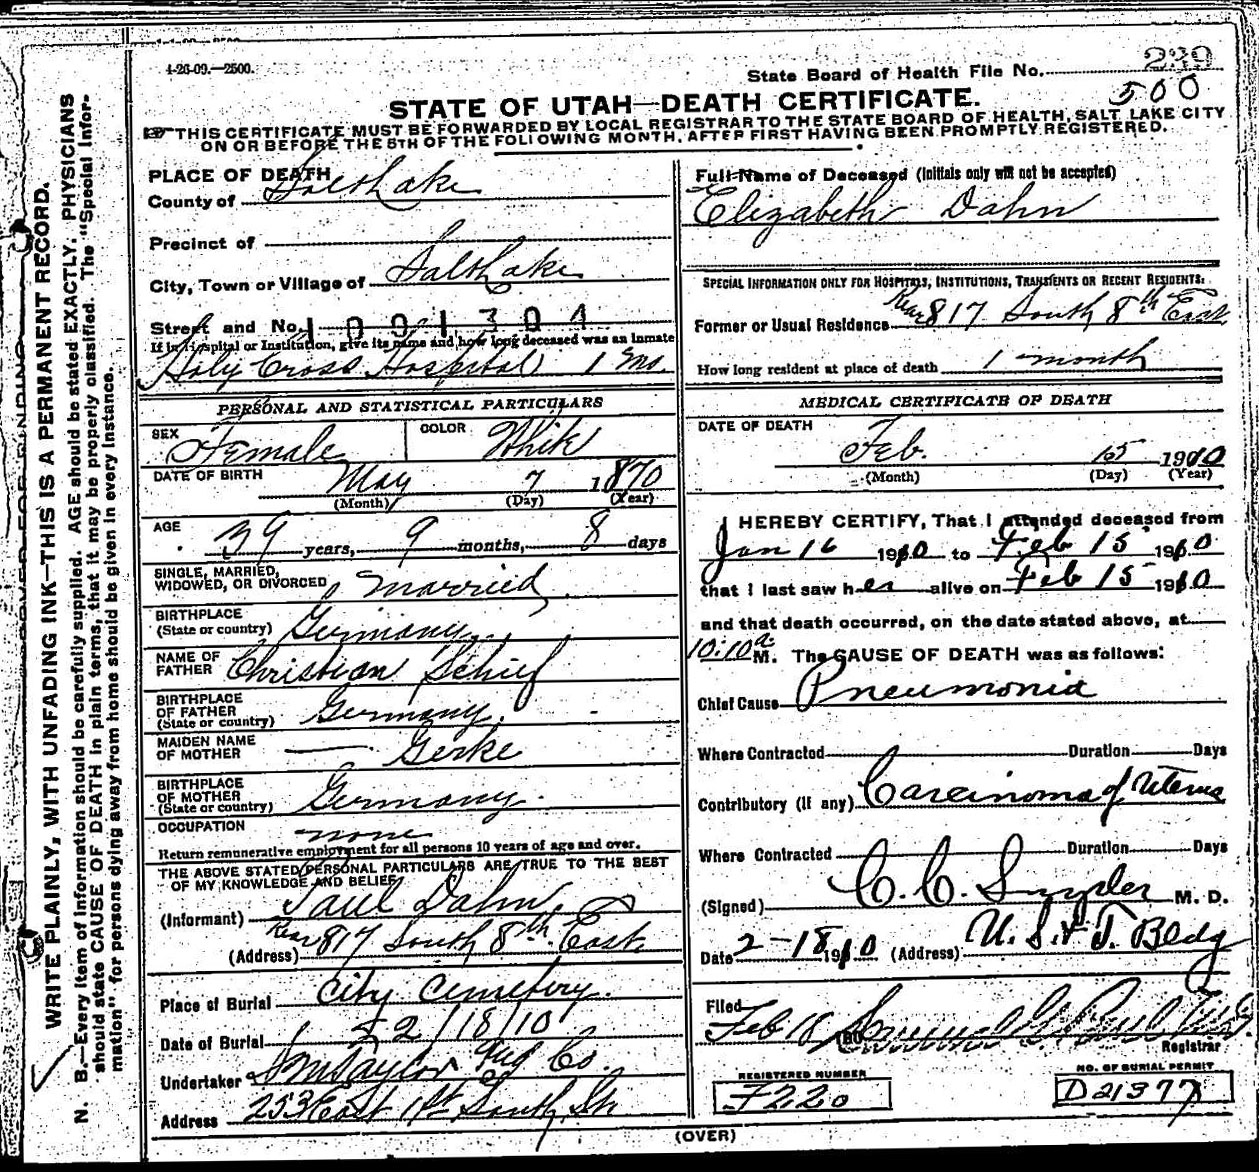 4-26-09.—2500.
State Board of Health File No. 239
500
STATE OF UTAH—DEATH CERTIFICATE.
THIS CERTIFICATE MUST BE FORWARDED BY LOCAL REGISTRAR TO THE STATE BOARD OF HEALTH, SALT LAKE CITY
ON OR BEFORE THE 5TH OF THE FOLLOWING MONTH, AFTER FIRST HAVING BEEN PROMPTLY REGISTERED.
PLACE OF DEATH
County of Salt Lake
Precinct of
City, Town or Village of Salt Lake
Street and No. 1001304
If in Hospital or Institution, give its name and how long deceased was an inmate
Holy Cross Hospital 1 Mo.
PERSONAL AND STATISTICAL PARTICULARS
SEX Female COLOR White
DATE OF BIRTH May 7 1870
(Month) (Day) (Year)
AGE 39 years, 9 months, 8 days
SINGLE, MARRIED,
WIDOWED, OR DIVORCED Married
BIRTHPLACE
(State or country) Germany
NAME OF
FATHER Christian
BIRTHPLACE
OF FATHER
(State or country) Germany.
MAIDEN NAME
OF MOTHER — Gerke
BIRTHPLACE
OF MOTHER
(State or country) Germany.
OCCUPATION none
Return remunerative employment for all persons 10 years of age and over.
THE ABOVE STATED PERSONAL PARTICULARS ARE TRUE TO THE BEST
OF MY KNOWLEDGE AND BELIEF
(Informant) Paul Dahn.
(Address) Rear 817 South 8th East
Place of Burial City Cemetery.
Date of Burial 2/18/10
Undertaker S M Taylor Und Co.
Address 253 East 1st South St
Full Name of Deceased (Initials only will not be accepted)
Elizabeth Dahn
SPECIAL INFORMATION ONLY FOR HOSPITALS, INSTITUTIONS, TRANSIENTS OR RECENT RESIDENTS:
Former or Usual Residence Rear 817 South 8th East
How long resident at place of death 1 month
MEDICAL CERTIFICATE OF DEATH
DATE OF DEATH
Feb. 15 1910
(Month) (Day) (Year)
I HEREBY CERTIFY, That I attended deceased from
Jan 16 1910 to Feb 15 1910
that I last saw her alive on Feb 15 1910
and that death occurred, on the date stated above, at
10:10 a. M. The CAUSE OF DEATH was as follows:
Chief Cause Pneumonia
Where Contracted Duration Days
Contributory (if any) Carcinoma of Uterus
Where Contracted Duration Days
(Signed) C. C. Snyder M. D.
Date 2-18 1910 (Address) U. S. & T. Bldg
Filed
Feb 18 Samuel G. Paul
Registrar
REGISTERED NUMBER
F220
NO. OF BURIAL PERMIT
D21377
(OVER)
WRITE PLAINLY, WITH UNFADING INK—THIS IS A PERMANENT RECORD.
N. B.—Every item of information should be carefully supplied. AGE should be stated EXACTLY. PHYSICIANS
should state CAUSE OF DEATH in plain terms, that it may be properly classified. The "Special Infor-
mation" for persons dying away from home should be given in every instance.